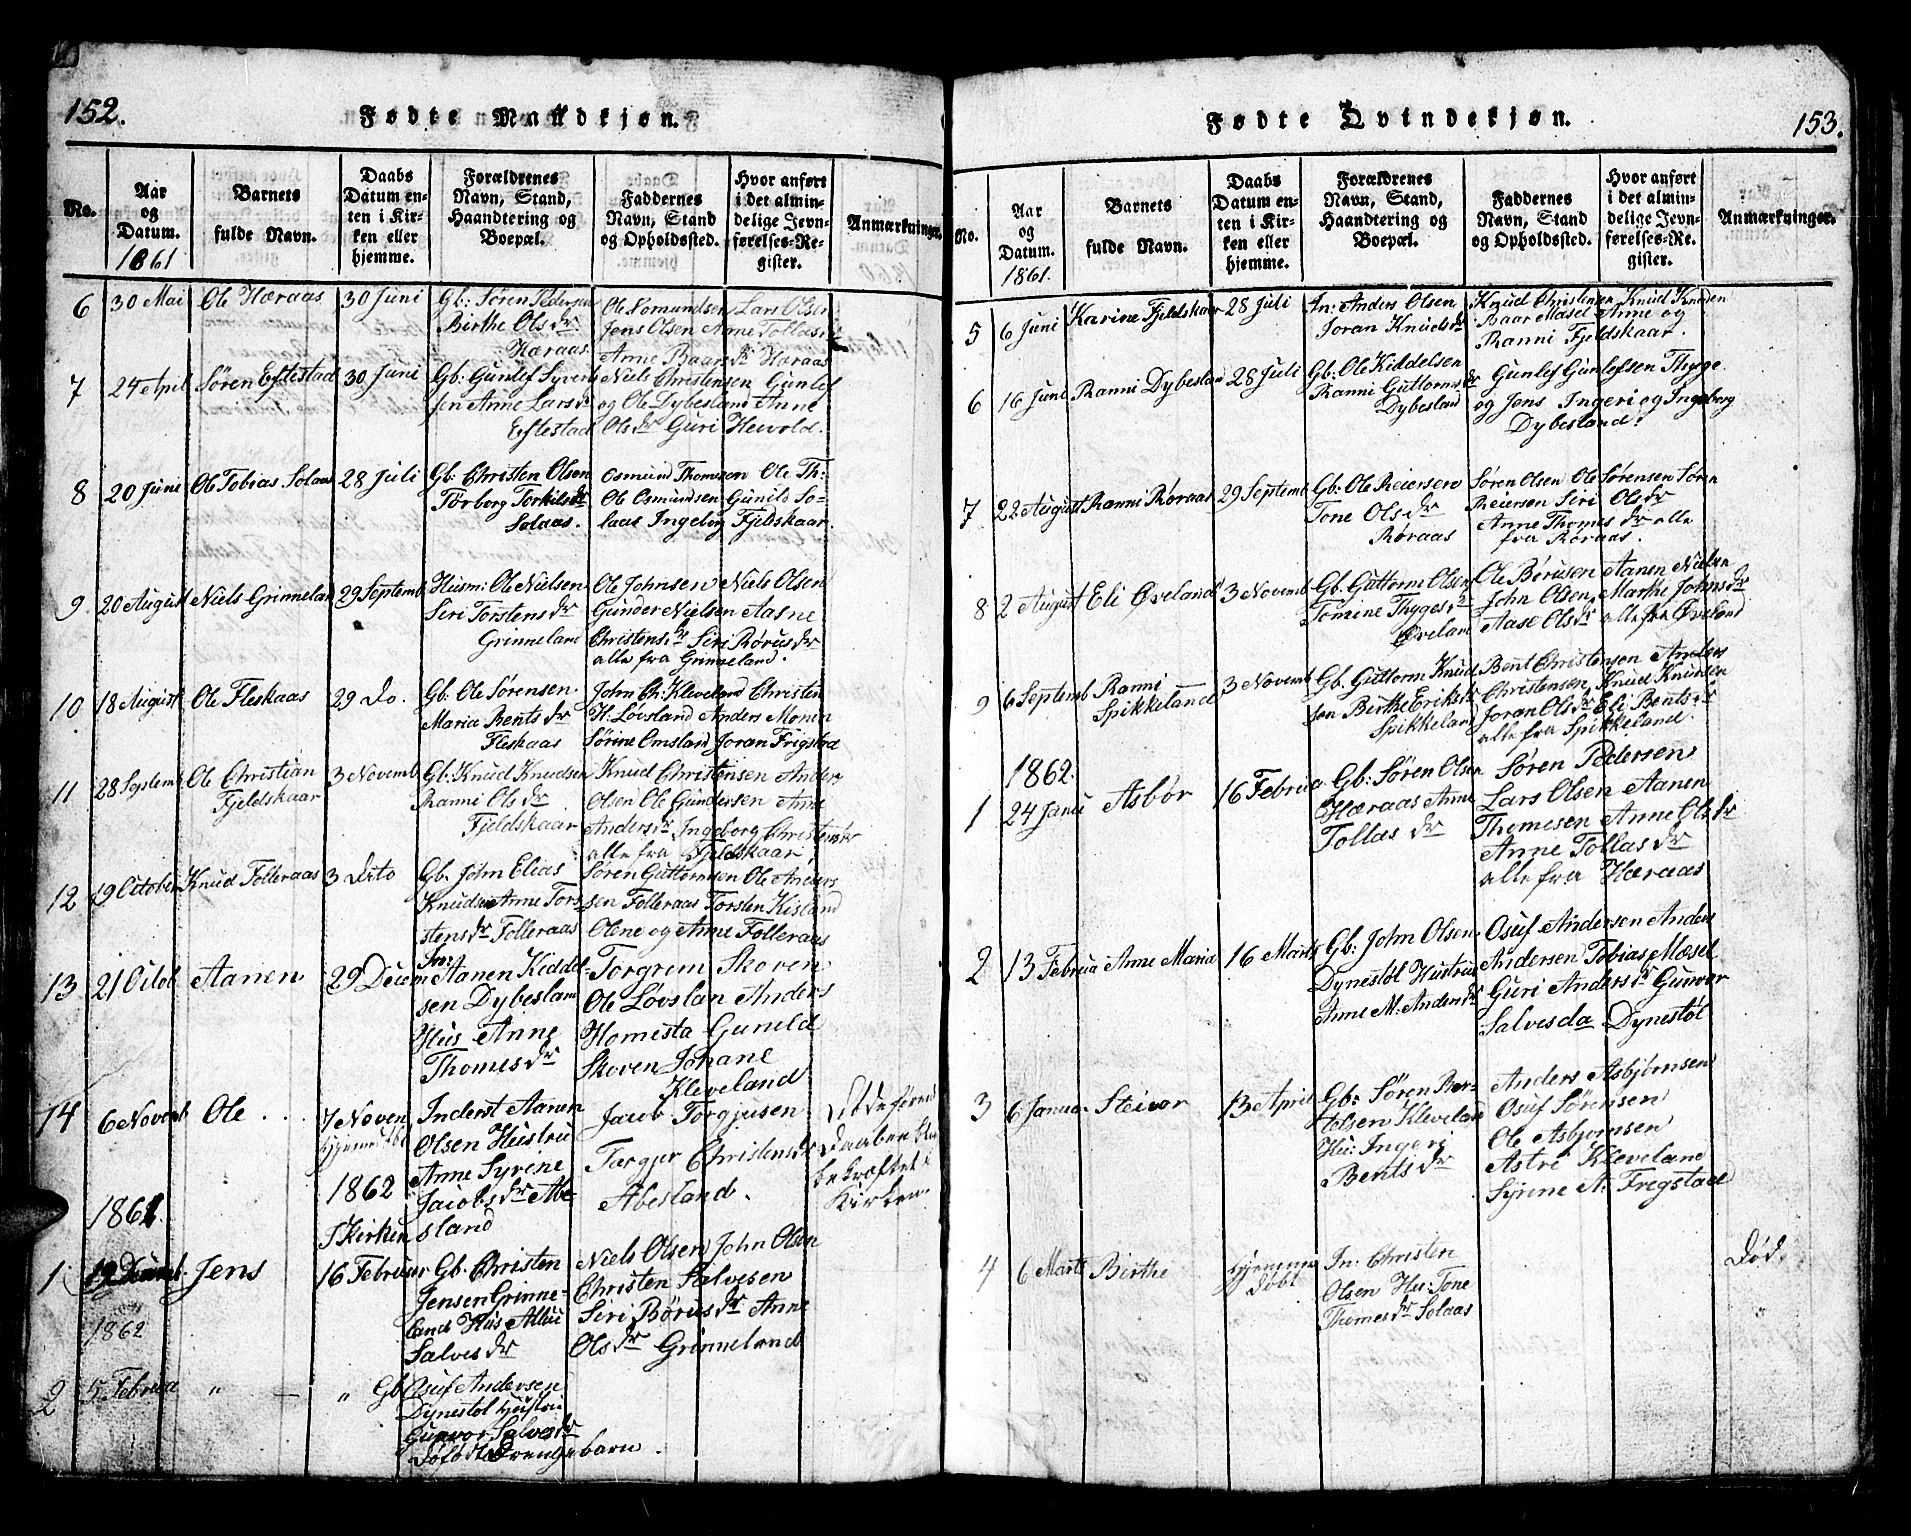 152.
Fødte Mandkjøn.
No.
Aar og Datum.
Barnets fulde Navn.
Daabs Datum enten i Kirken eller hjemme.
Forældrenes Navn, Stand, Haandtering og Boepæl.
Faddernes Navn, Stand og Opholdssted.
Hvor anført i det almindelige Jevnførelses-Register.
Anmærkninger.
1861
6 30 Mai Ole Hæraas 30 Juni
Gb: Søren Pedersen
Birthe Olsdr
Hæraas.
Ole Lomundsen Lars Olsen
Jens Olsen Anne Tollasdr
Anne Baarsdr Hæraas
7 24 April Søren Eftestad 30 Juni
Gb: Gunlef Syvert
sen Anne Larsdr
Eftestad
Niels Christensen Gunlef
og Ole Dybesland Anne
Olsdr Guri Hevold.
8 20 Juni Ole Tobias Solaas 28 Juli
Gb: Christen Olsen
Torborg Torkilsdr
Solaas.
Osmund Thomesen Ole Th:
Ole Osmundsen Gunild So-
laas Ingeborg Fjeldskaar.
9 20 August Niels Grinneland 29 Septemb
Husm: Ole Nielsen
Seri Torstensdr
Grinneland
Ole Johnsen Niels Olsen
Gunder Nielsen Aasne
Christensdr Seri Rørusdr
alle fra Grinneland.
10 18 August Ole Fleskaas 29 Do.
Gb. Ole Sørensen
Maria Bentsdr
Fleskaas
John Ch: Kleveland Christen
H. Løvsland Anders Monen
Sørine Omsland Joran Frigstad
11 28 Septemb Ole Christian 3 Novemb
Fjeldskaar
Gb: Knud Knudsen
Ranni Olsdr
Fjeldskaar
Knud Christensen Anders
Olsen Ole Gundersen Anne
Andersdr Ingeborg Christensdr
alle fra Fjeldskaar
12 19 October Knud Folleraas 3 Dito
Gb. John Elias
Knudsen Anne Tors-
stensdr Folleraas
Søren Guttormsen Ole Anders
sen Folleraas Torsten Kisland
Olene og Anne Folleraas
13 21 Octob Aanen 29 Decem
In: Aanen Kiddel-
sen Dybesland
Hus Anne
Thomesdr
Torgrem Skoven
Ole Løvslan Anders
Homesta Guneld
Skoven Johane
Kleveland
14 6 Novemb Ole 7 Noven
hjemmedøbt
1862
I Kirken
Inderst Aanen
Olsen Hustru
Anne Syrine
Jacobsdr Abe-
sland
Jacob Torgjusen
Targjer Christensdr
Abesland.
Udførend
Daaben blev
bekræftet i
Kirken
1861.
1 19 Decemb. Jens 16 Februar
Gb: Christen
Jensen Grinne-
land Hus
Salvesdr
Niels Olsen John Olsen
Christen Salvesen
Seri Børusdr Anne
Olsdr Grinneland
1862
2 5 Februa " — "
Gb Osuf Andersen
Dynestøl Hustru
Gunvor Salvesdr
Døfødte Drengebarn.
153.
Fødte Qvindekjøn.
No.
Aar og Datum.
Barnets fulde Navn.
Daabs Datum enten i Kirken eller hjemme.
Forældrenes Navn, Stand, Haandtering og Boepæl.
Faddernes Navn, Stand og Opholdssted.
Hvor anført i det almindelige Jevnførelses-Register.
Anmærkninger.
1861.
5 6 Juni Karine Fjeldskaar 28 Juli
In: Anders Olsen
Joran Knudsdr
Knud Christensen Knud Knudsen
Baar Møsel Anne og
Ranni Fjeldskaar.
6 16 Juni Ranni Dybesland 28 Juli
Gb: Ole Kiddelsen
Ranni Guttormsdr
Dybesland
Gunlef Gunlefsen Thygge
og Jens Ingeri og Ingeborg
Dybesland.
7 22 August Ranni Røraas 29 Septemb
Gb: Ole Reiersen
Tone Olsdr
Røraas
Søren Olsen Ole Sørensen Søren
Reiersen Siri Olsdr
Anne Thomesdr alle
fra Røraas.
8 2 August Eli Øveland 3 Novemb
Gb: Guttorm Olsen
Tomine Thyggesdr
Øvelan
Ole Børusen Aanen Nielsen
John Olsen Marthe Johnsdr
Aase Olsdr alle fra Øveland
9 6 Septemb Ranni 3 Novemb
Spikkeland
Gb. Guttorm Knud
sen Birthe Eriksdr
Spikkeland
Bent Christensen Anders
Christensen Knud Knudsen
Joran Olsdr Eli Bentsdr
alle fra Spikkeland.
1862.
1 24 Janu Asbør 16 Februa
Gb: Søren Olsen
Hæraas Anne
Tollasdr
Søren Pedersen
Lars Olsen Aanen
Thomesen Anne Olsdr
Anne Tollasdr
alle fra Hæraas
2 13 Februa Anne Maria 16 Marts
Gb: John Olsen
Dynestøl Hustru
Anne M. Andersdr
Osuf Andersen Anders
Andersen Tobias Mosel
Guri Andersdr Gunvor
Salvesda Dynestøl
3 6 Januar Steivor 13 April
Gb: Søren Ber-
telsen Kleveland
Hu: Ingeri
Bentsdr
Anders Asbjørnsen
Osuf Sørensen
Ole Asbjørnsen
Astri Kleveland
Syrine A. Fregstad
4 6 Marts Birthe
hjemme
Døbt
In: Christen
Olsen Hu: Tone
Thomesdr Solaas
Død.